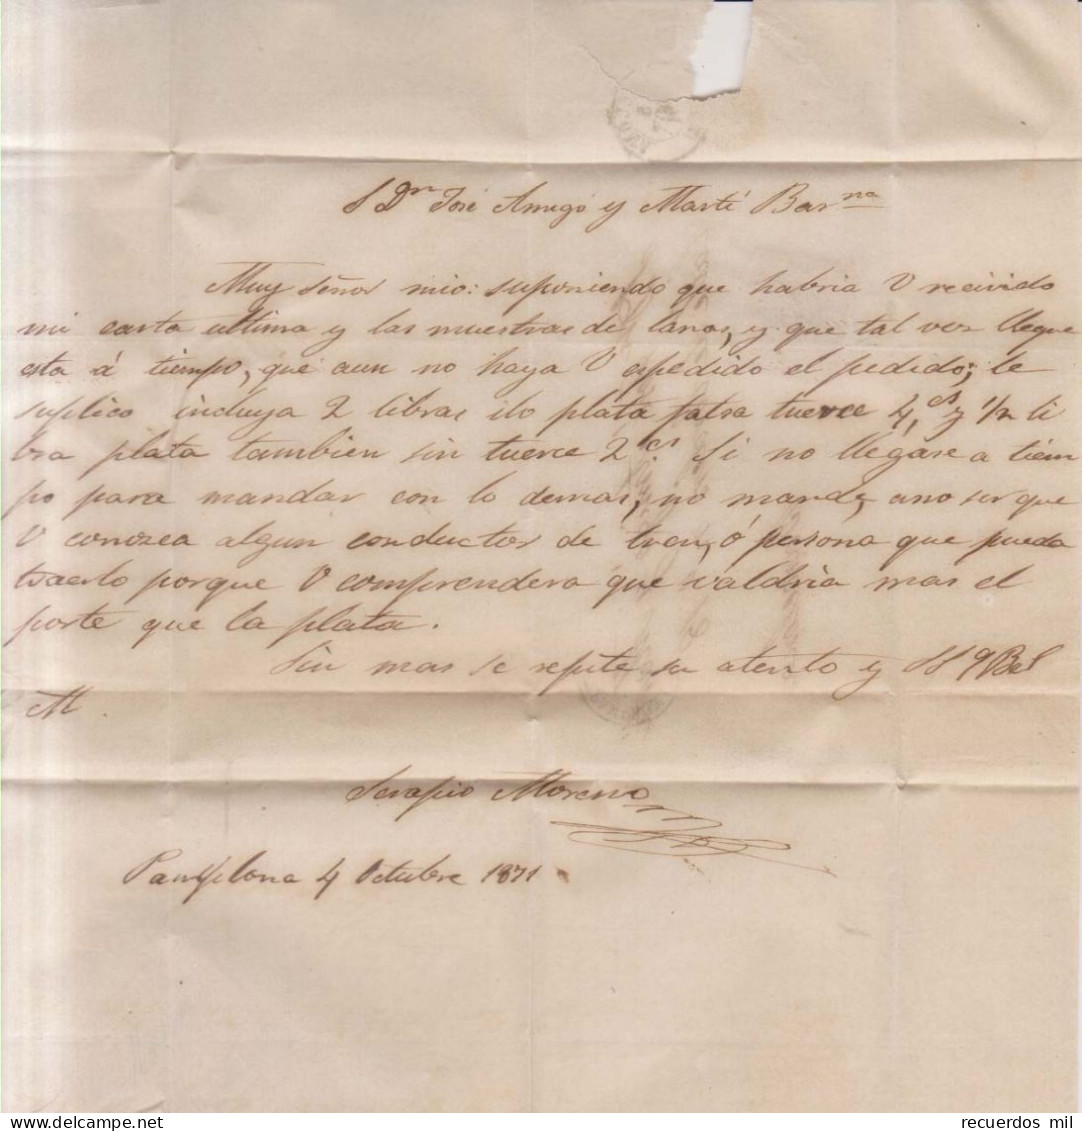 S Dn José Amigó y Martí Barna
Muy señor mio: suponiendo que habria V recivido
mi carta ultima y las muestras de lanas, y que tal vez llegue
esta á tiempo, que aun no haya V epedido el pedido; le
suplico incluya 2 libras ilo plata falsa tuerce 4 cs y 1/2 li
bra plata tambien sin tuerce 2 cs Si no llegase a tiem
po para mandar con lo demas, no mande, a no ser que
V conozca algun conductor de tren, ó persona que pueda
traerlo porque V comprendera que valdria mas el
porte que la plata.
Sin mas se repite su atento y SS q B S
M.
Serapio Moreno
Pamplona 4 Octubre 1871.
recuerdos mil